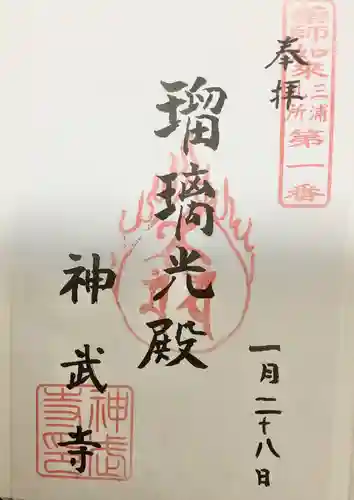 薬師如来
三浦
札所
第一番
奉拝
瑠璃光殿
一月二十八日
神武寺
神武
寺印